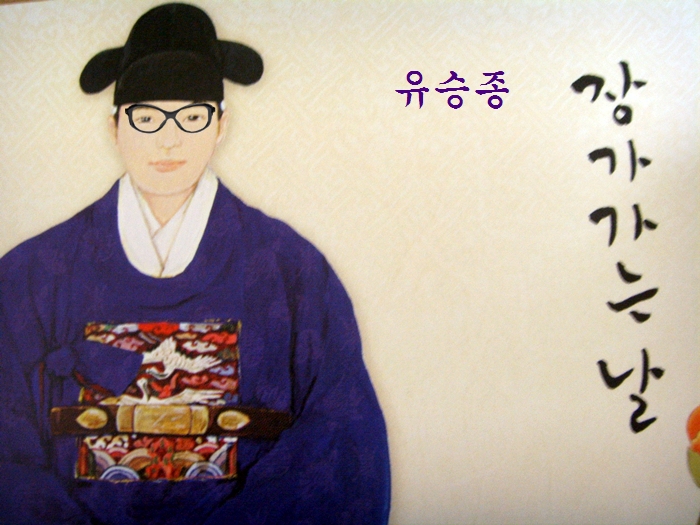 유승종
장가가는 날